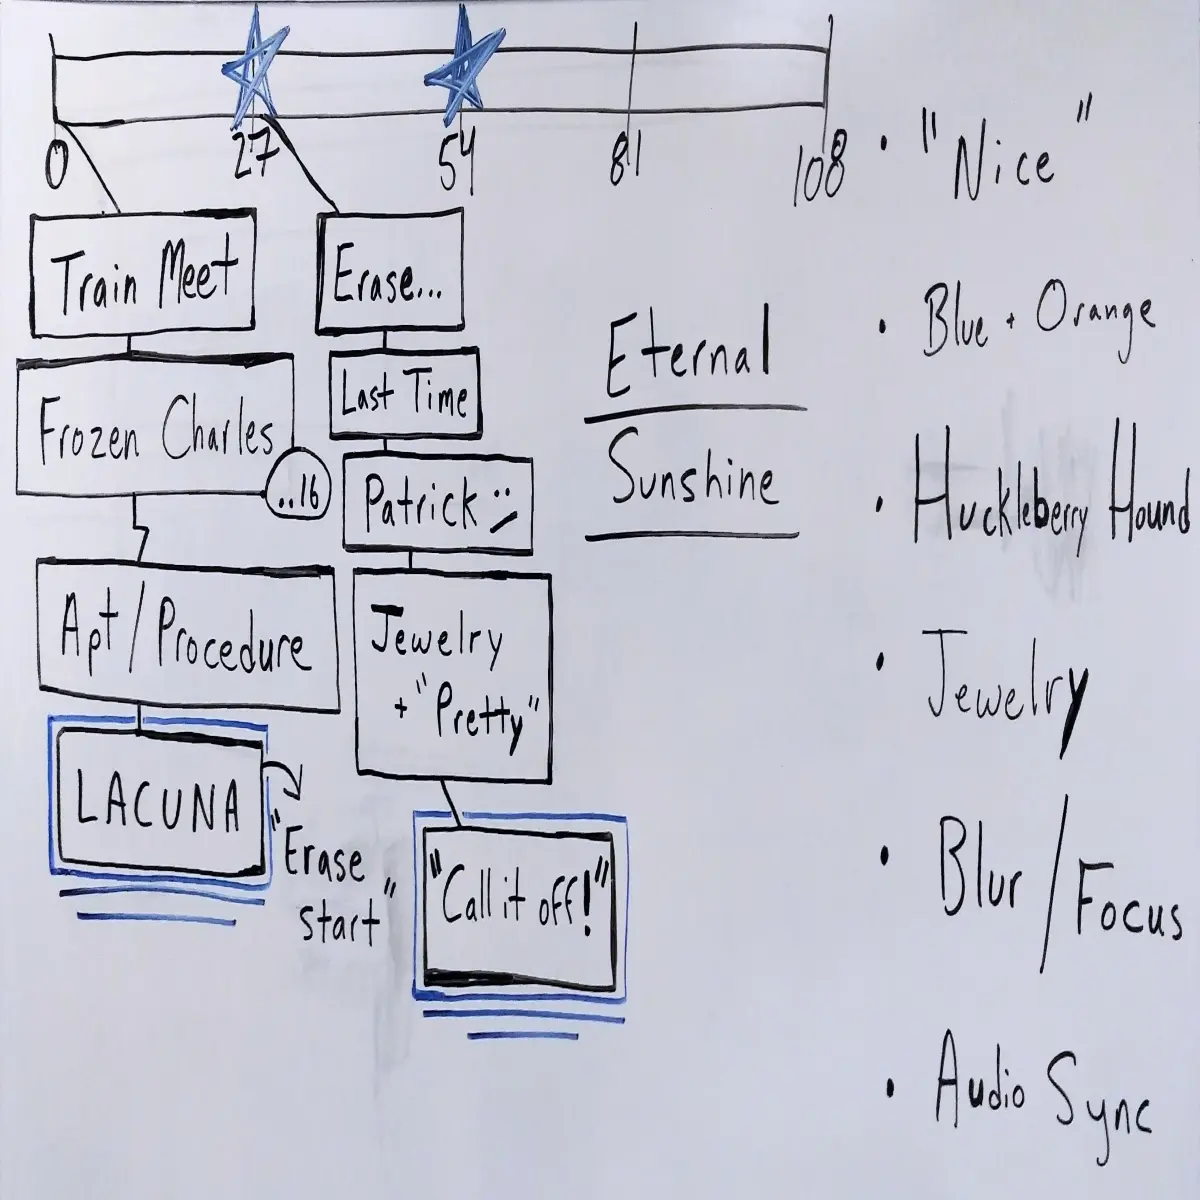 0
27
54
81
108
Train Meet
Frozen Charles
..16
Apt / Procedure
LACUNA
"Erase
start"
Erase...
Last Time
Patrick
Jewelry
+ "Pretty"
"Call it off!"
Eternal
Sunshine
• "Nice"
• Blue + Orange
• Huckleberry Hound
• Jewelry
• Blur / Focus
• Audio Sync